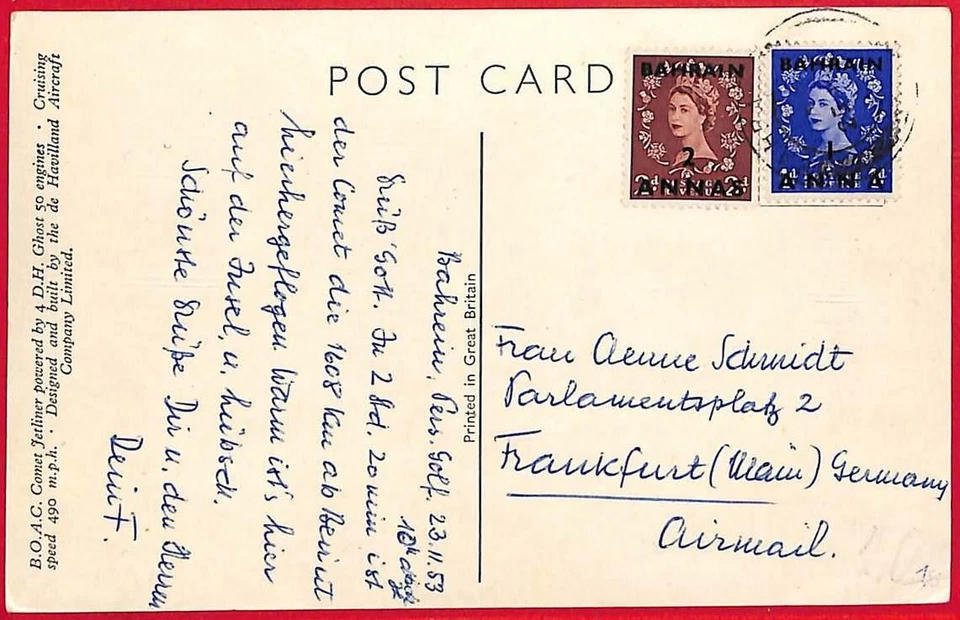 POST CARD
BAHRAIN
2
ANNAS
BAHRAIN
1
ANNA
B.O.A.C. Comet Jetliner powered by 4 D.H. Ghost 50 engines · Cruising
speed 490 m.p.h. · Designed and built by the de Havilland Aircraft
Company Limited.
Printed in Great Britain
Bahrein, Pers. Golf. 23.11.53
Grüß Gott. In 2 Std. 20 min ist
der Comet die 1608 Km ab Beirut
hierhergeflogen. Warm ist's hier
auf der Insel, u. hübsch.
Schönste Grüße Dir u. den Herren
Dein F.
Frau Aenne Schmidt
Parlamentsplatz 2
Frankfurt (Main) Germany
Airmail.